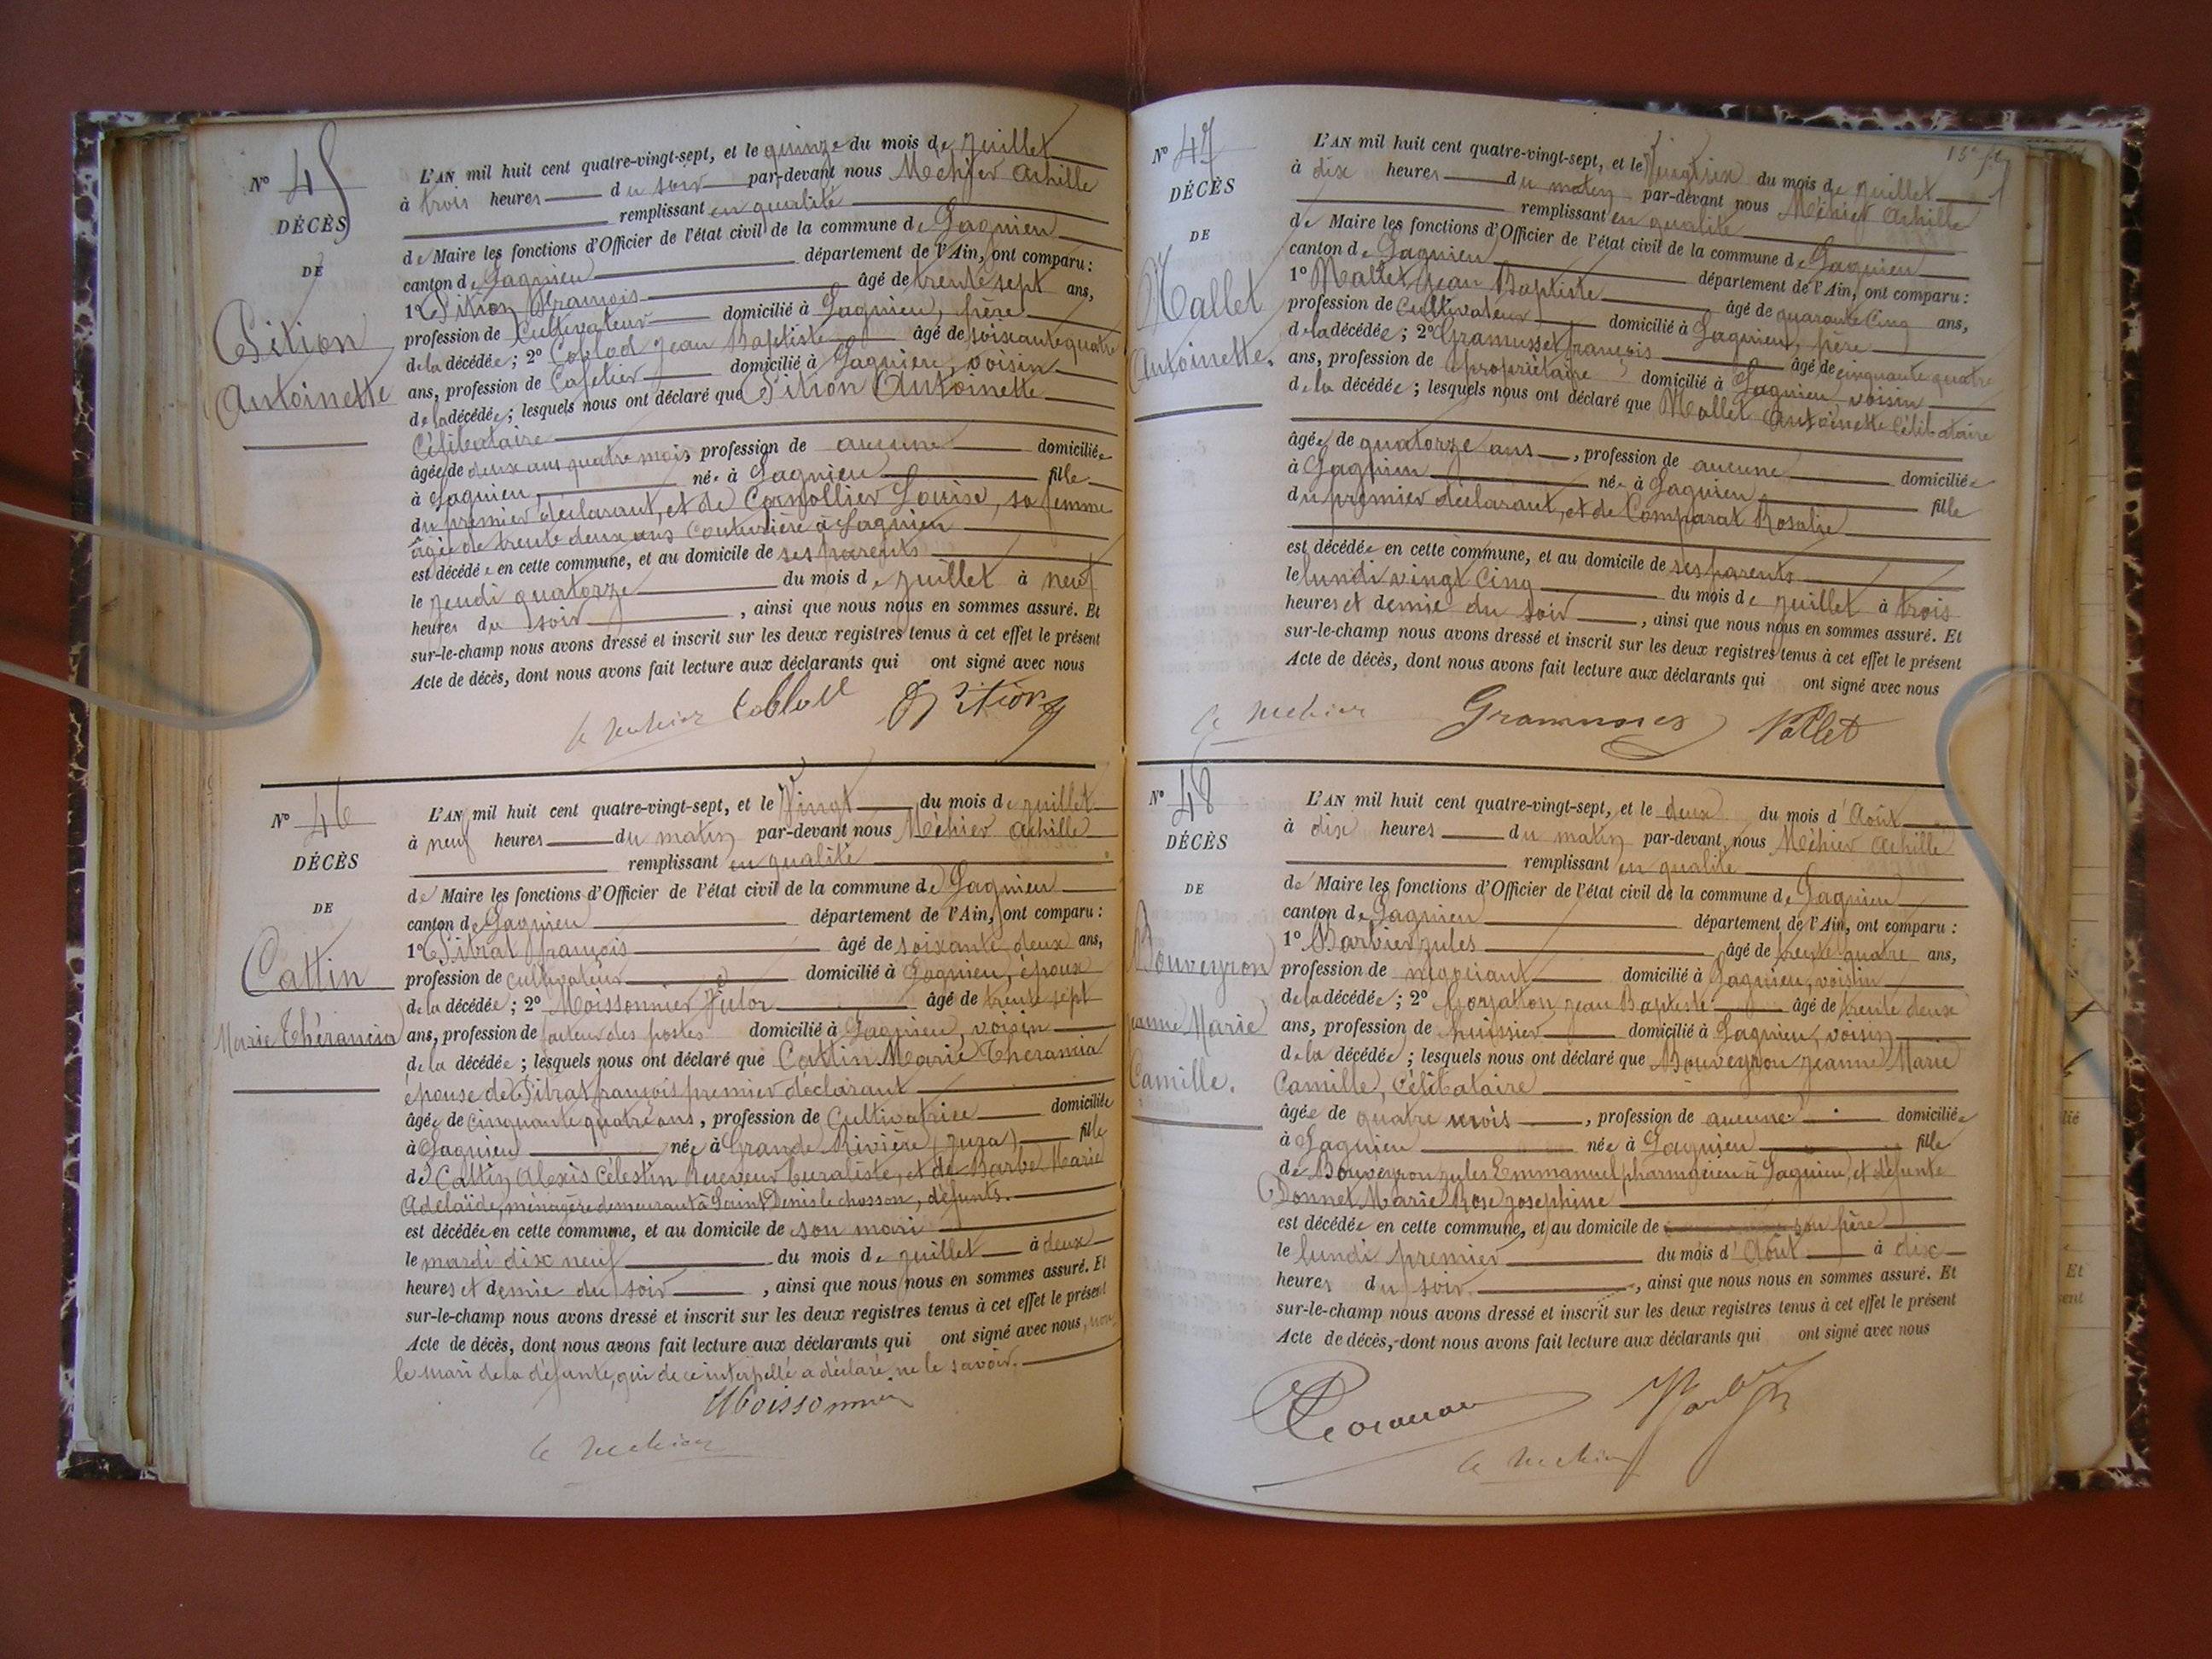 N° 45
DÉCÈS
DE
Pition
Antoinette
L'AN mil huit cent quatre-vingt-sept, et le quinze du mois de juillet
à trois heures du soir par-devant nous Méhier Achille
remplissant en qualité
de Maire les fonctions d'Officier de l'état civil de la commune de Lagnieu
canton de Lagnieu département de l'Ain, ont comparu :
1° Pition François âgé de trente sept ans,
profession de Cultivateur domicilié à Lagnieu, père
de la décédée ; 2° Coblod Jean Baptiste âgé de soixante quatre
ans, profession de Cafetier domicilié à Lagnieu, voisin
de la décédée ; lesquels nous ont déclaré que Pition Antoinette
Célibataire
âgée de deux ans quatre mois, profession de aucune domiciliée
à Lagnieu, née à Lagnieu fille
du premier déclarant, et de Cornollier Louise, sa femme
âgée de trente deux ans Couturière à Lagnieu
est décédée en cette commune, et au domicile de ses parents
le jeudi quatorze du mois de juillet à neuf
heures du soir, ainsi que nous nous en sommes assuré. Et
sur-le-champ nous avons dressé et inscrit sur les deux registres tenus à cet effet le présent
Acte de décès, dont nous avons fait lecture aux déclarants qui ont signé avec nous
Pition
N° 46
DÉCÈS
DE
Cattin
Marie Thérancia
L'AN mil huit cent quatre-vingt-sept, et le Vingt du mois de juillet
à neuf heures du matin par-devant nous Méhier Achille
remplissant en qualité
de Maire les fonctions d'Officier de l'état civil de la commune de Lagnieu
canton de Lagnieu département de l'Ain, ont comparu :
1° Pitrat françois âgé de soixante deux ans,
profession de Cultivateur domicilié à Lagnieu, époux
de la décédée ; 2° Moissonnier Victor âgé de trente sept
ans, profession de facteur des postes domicilié à Lagnieu, voisin
de la décédée ; lesquels nous ont déclaré que Cattin Marie Thérancia
épouse de Pitrat françois premier déclarant
âgée de cinquante quatre ans, profession de Cultivatrice domiciliée
à Lagnieu née à Grande Rivière (Jura) fille
de Cattin Alexis Célestin Receveur buraliste, et de Barbe Marie
Adélaïde, ménagère demeurant à Saint Denis le chosson, défunts.
est décédée en cette commune, et au domicile de son mari
le mardi dix neuf du mois de juillet à deux
heures et demie du soir, ainsi que nous nous en sommes assuré. Et
sur-le-champ nous avons dressé et inscrit sur les deux registres tenus à cet effet le présent
Acte de décès, dont nous avons fait lecture aux déclarants qui ont signé avec nous, non
le mari de la défunte, qui de ce interpellé a déclaré ne le savoir.
Moissonnier
N° 47
DÉCÈS
DE
Mallet
Antoinette.
L'AN mil huit cent quatre-vingt-sept, et le Vingt six du mois de juillet
à dix heures du matin par-devant nous Méhier Achille
remplissant en qualité
de Maire les fonctions d'Officier de l'état civil de la commune de Lagnieu
canton de Lagnieu département de l'Ain, ont comparu :
1° Mallet Jean Baptiste âgé de quarante Cinq ans,
profession de Cultivateur domicilié à Lagnieu, père
de la décédée ; 2° Gramusset françois âgé de cinquante quatre
ans, profession de propriétaire domicilié à Lagnieu voisin
de la décédée ; lesquels nous ont déclaré que Mallet Antoinette Célibataire
âgée de quatorze ans, profession de aucune domiciliée
à Lagnieu née à Lagnieu fille
du premier déclarant, et de Comparat Rosalie
est décédée en cette commune, et au domicile de ses parents
le lundi vingt Cinq du mois de juillet à trois
heures et demie du soir, ainsi que nous nous en sommes assuré. Et
sur-le-champ nous avons dressé et inscrit sur les deux registres tenus à cet effet le présent
Acte de décès, dont nous avons fait lecture aux déclarants qui ont signé avec nous
N° 48
DÉCÈS
DE
Bouveyron
Jeanne Marie
Camille.
L'AN mil huit cent quatre-vingt-sept, et le deux du mois d'Août
à dix heures du matin par-devant nous Méhier Achille
remplissant en qualité
de Maire les fonctions d'Officier de l'état civil de la commune de Lagnieu
canton de Lagnieu département de l'Ain, ont comparu :
1° Barbier Jules âgé de trente quatre ans,
profession de négociant domicilié à Lagnieu, voisin
de la décédée ; 2° Jean Baptiste âgé de trente deux
ans, profession de huissier domicilié à Lagnieu, voisin
de la décédée ; lesquels nous ont déclaré que Bouveyron Jeanne Marie
Camille, Célibataire
âgée de quatre mois, profession de aucune domiciliée
à Lagnieu née à Lagnieu fille
de Bouveyron Jules Emmanuel pharmacien à Lagnieu, et défunte
Donnet Marie Rose Josephine
est décédée en cette commune, et au domicile de son père
le lundi premier du mois d'Août à dix
heures du soir, ainsi que nous nous en sommes assuré. Et
sur-le-champ nous avons dressé et inscrit sur les deux registres tenus à cet effet le présent
Acte de décès, dont nous avons fait lecture aux déclarants qui ont signé avec nous